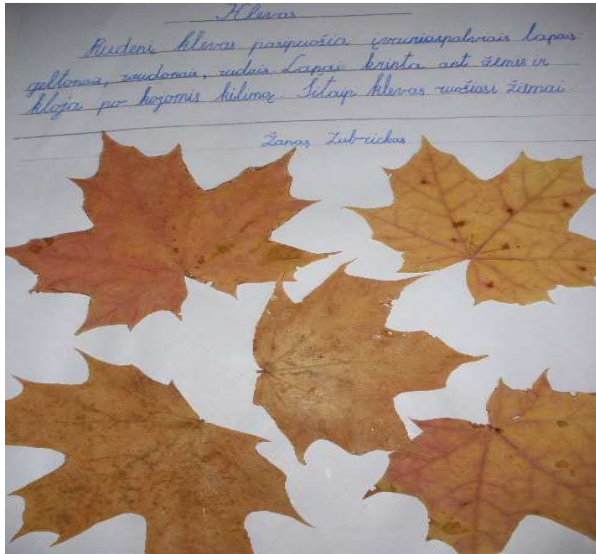 Klevas
Rudenį klevas pasipuošia įvairiaspalviais lapais:
geltonais, raudonais, rudais. Lapai krinta ant žemės ir
kloja po kojomis kilimą. Šitaip klevas ruošiasi žiemai.
Žanas Zubrickas